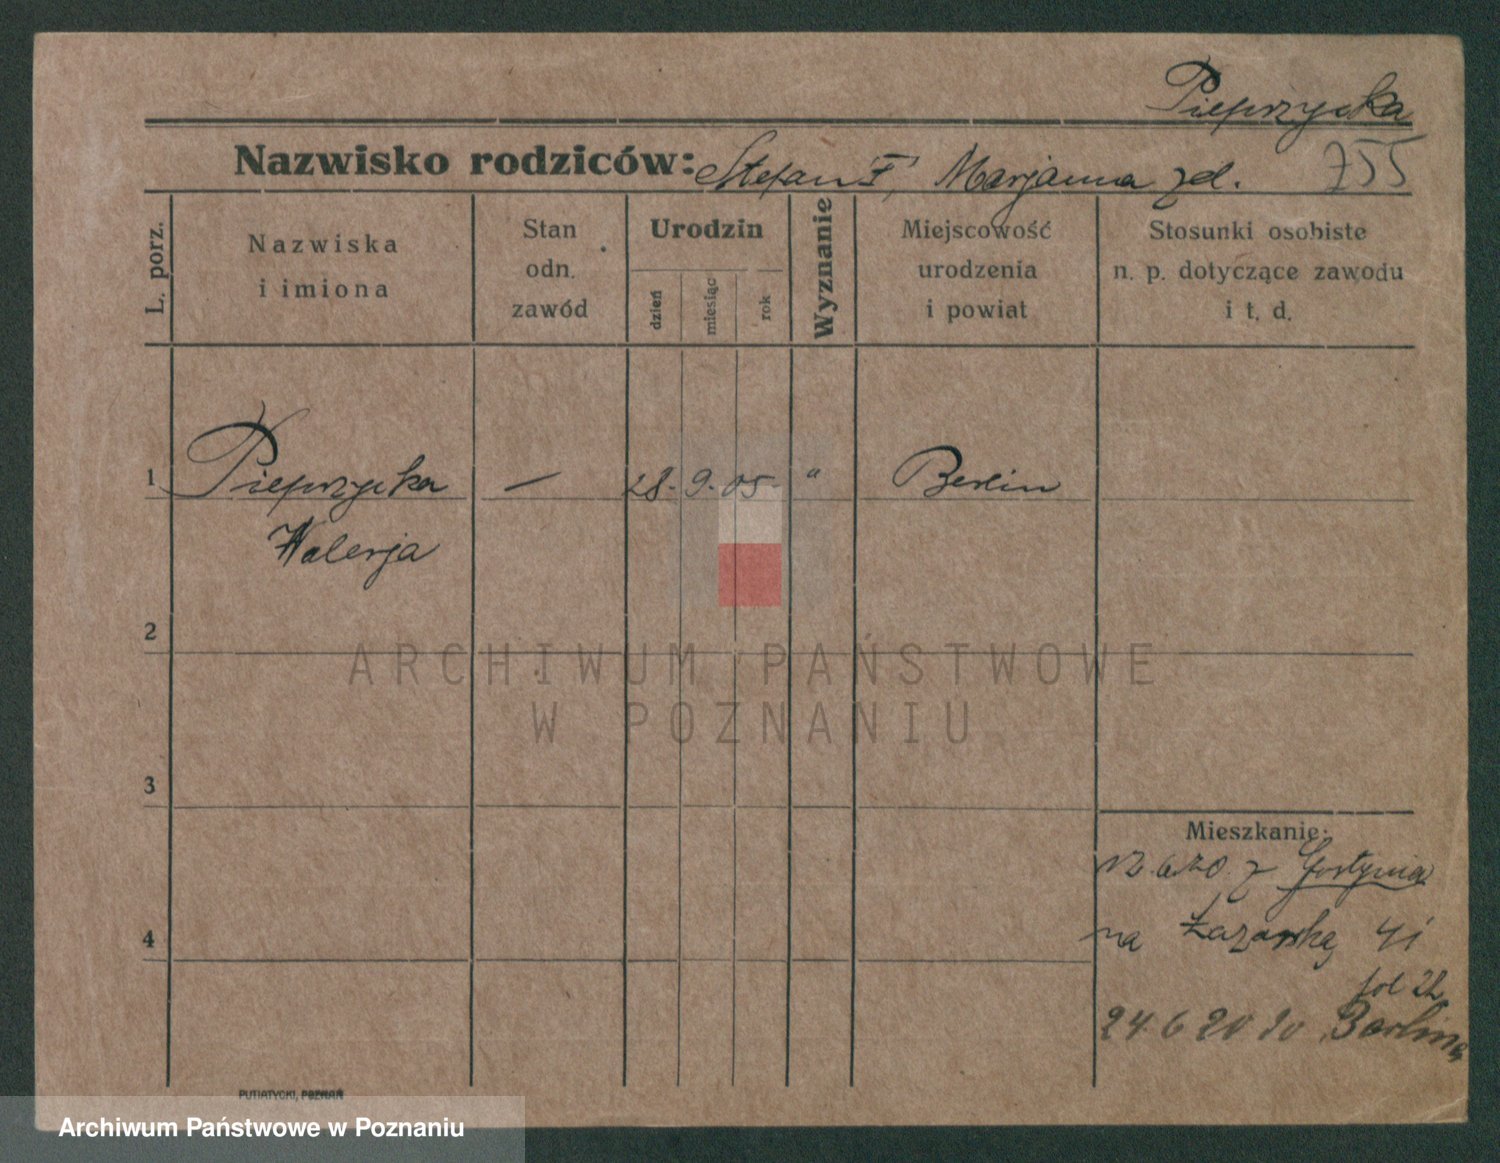 Pieprzycka
Nazwisko rodziców: Stefan F, Marjanna zd. 755
L. porz.
Nazwiska i imiona
Stan odn. zawód
Urodzin
dzień
miesiąc
rok
Wyznanie
Miejscowość urodzenia i powiat
Stosunki osobiste n. p. dotyczące zawodu i t. d.
1 Pieprzycka — 28. 9. 05 " Berlin
Walerja
2
ARCHIWUM PAŃSTWOWE
W POZNANIU
3
Mieszkanie:
z Gostynia
4
na Łazarską 41
24 6 20 do Berlina
PUTIATYCKI, POZNAŃ
Archiwum Państwowe w Poznaniu